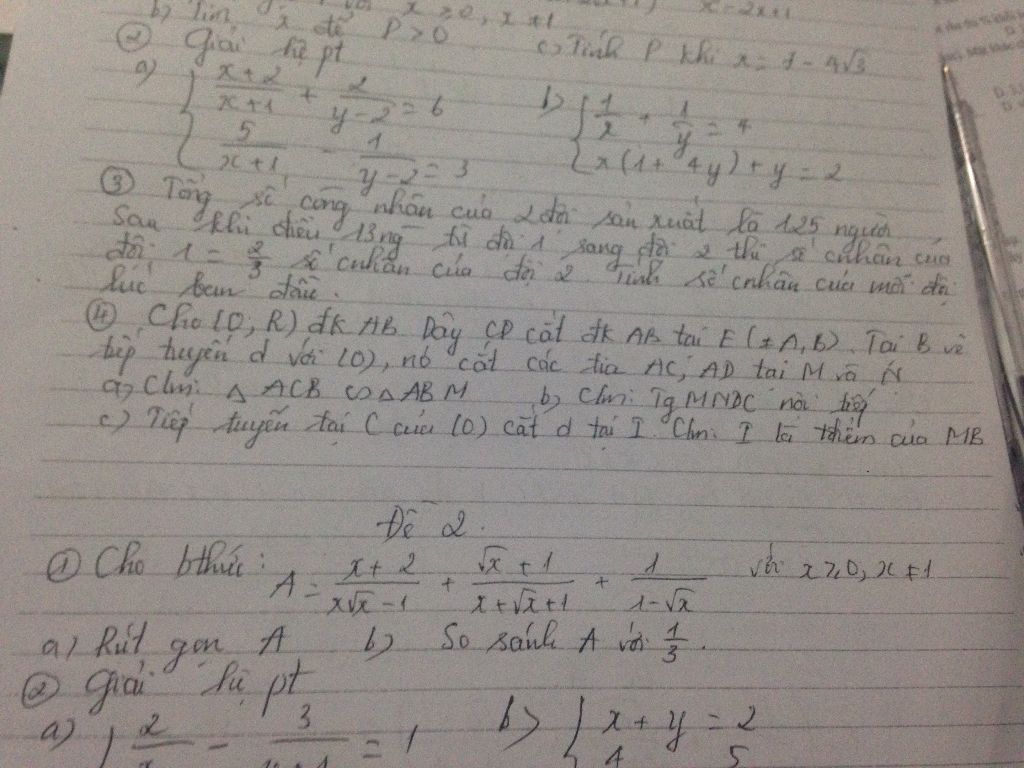 b) Tìm x để P > 0 c) Tính P khi x = 7 - 4√3
② Giải hệ pt
a) { (x+2)/(x+1) + 2/(y-2) = 6
5/(x+1) - 1/(y-2) = 3
b) { 1/x + 1/y = 4
x(1+4y) + y = 2
③ Tổng số công nhân của 2 đội sản xuất là 125 người
Sau khi điều 13ng từ đội 1 sang đội 2 thì số cnhân của
đội 1 = 2/3 số cnhân của đội 2. Tính số cnhân của mỗi đội
lúc ban đầu.
④ Cho (O, R) đk AB. Dây CD cắt đk AB tại E (≠ A, B). Tại B vẽ
tiếp tuyến d với (O), nó cắt các tia AC, AD tại M và N
a) Cm: △ ACB ∽ △ ABM b) Cm: Tg MNDC nội tiếp
c) Tiếp tuyến tại C của (O) cắt d tại I. Cm: I là tđiểm của MB
Đề 2.
① Cho bthức: A = (x+2)/(x√x-1) + (√x+1)/(x+√x+1) + 1/(1-√x) với x ≥ 0, x ≠ 1
a) Rút gọn A b) So sánh A với 1/3.
② Giải hệ pt
a) { 2 - 3 = 1 b) { x + y = 2
4 5